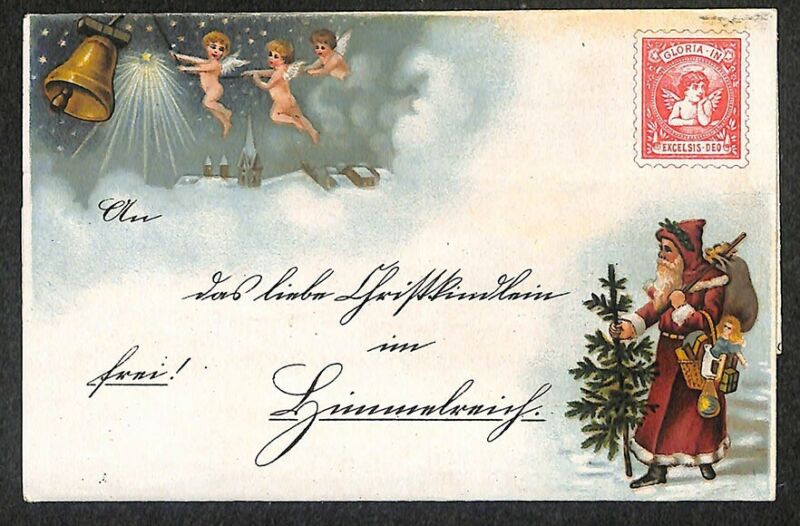 GLORIA·IN
EXCELSIS·DEO
An
das liebe Christkindlein
im
frei!
Himmelreich.